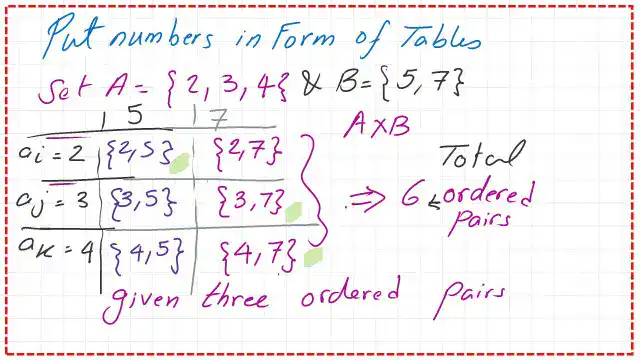 Put numbers in Form of Tables
Set A = {2, 3, 4{ & B = {5, 7}
5 7 A×B
ai = 2 {2,5} {2,7} Total
aj = 3 {3,5} {3,7} ⇒ 6 ← ordered
pairs
aK = 4 {4,5} {4,7}
given three ordered pairs